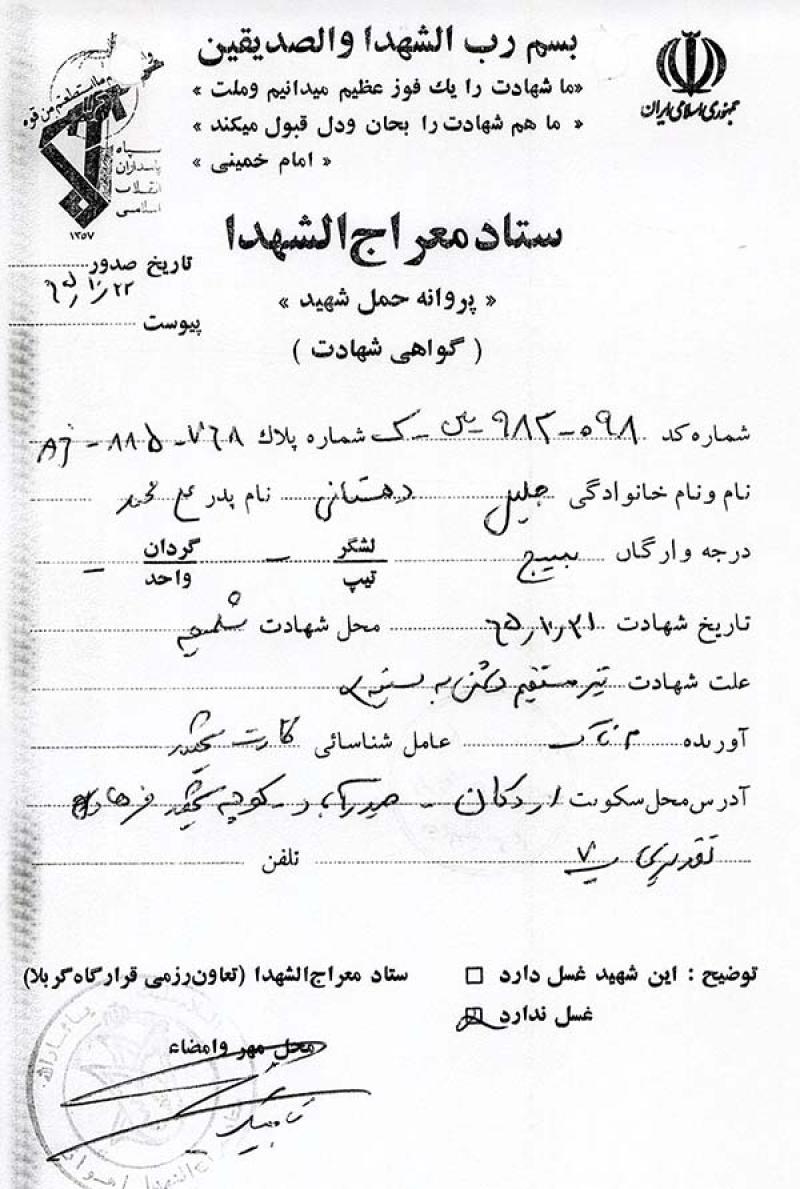 بسم رب الشهدا والصدیقین
«ما شهادت را یك فوز عظیم میدانیم وملت »
« ما هم شهادت را بجان ودل قبول میکند »
« امام خمینی »
جمهوری اسلامی ایران
واعدوا لهم مااستطعتم من قوه
سپاه
پاسداران
انقلاب
اسلامی
۱۳۵۷
ستاد معراج الشهدا
تاریخ صدور ۶۵/۱۰/۲۲
« پروانه حمل شهید »
پیوست
( گواهی شهادت )
شماره کد ۰۵۹۸-۹۸۲ شماره پلاك ۷۶۸-۸۸۵-AJ
نام ونام خانوادگی جلیل دهستانی نام پدر علی محمد
درجه وارگان بسیج لشگر تیپ – گردان واحد –
تاریخ شهادت ۶۵/۱۰/۲۱ محل شهادت شلمچه
علت شهادت تیر مستقیم دشمن به سینه
آورنده عامل شناسائی کارت شهید
آدرس محل سکونت اردکان – صدرآباد – کوچه شهید فرهاد
تقدیری پ ۷ تلفن
توضیح : این شهید غسل دارد □
غسل ندارد
ستاد معراج الشهدا (تعاون رزمی قرارگاه کربلا)
محل مهر وامضاء